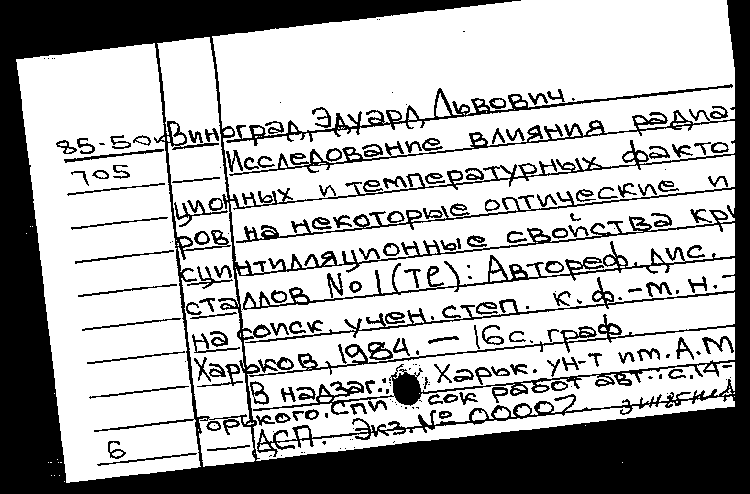 85-50к Виноград, Эдуард Львович.
705 Исследование влияния радиа-
ционных и температурных факто-
ров на некоторые оптические и
сцинтилляционные свойства кри-
сталлов No I (Tl): Автореф. дис.
на соиск. учен. степ. к. ф.-м. н. -
Харьков, 1984. — 16 с., граф.
В надзаг.: Харьк. ун-т им. А. М.
Горького. Список работ авт.: с. 14-
6 ДСП. Экз. № 00007